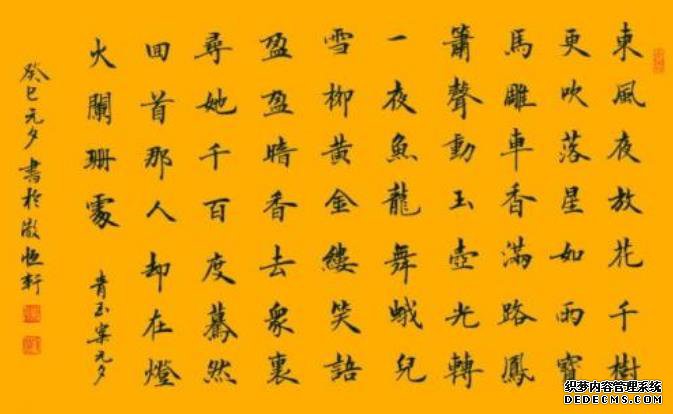 東風夜放花千樹
更吹落星如雨寶
馬雕車香滿路鳳
簫聲動玉壺光轉
一夜魚龍舞蛾兒
雪柳黃金縷笑語
盈盈暗香去衆裏
尋她千百度驀然
回首那人却在燈
火闌珊處 青玉案元夕
癸巳元夕書於恒軒
织梦内容管理系统
DEDECMS.COM